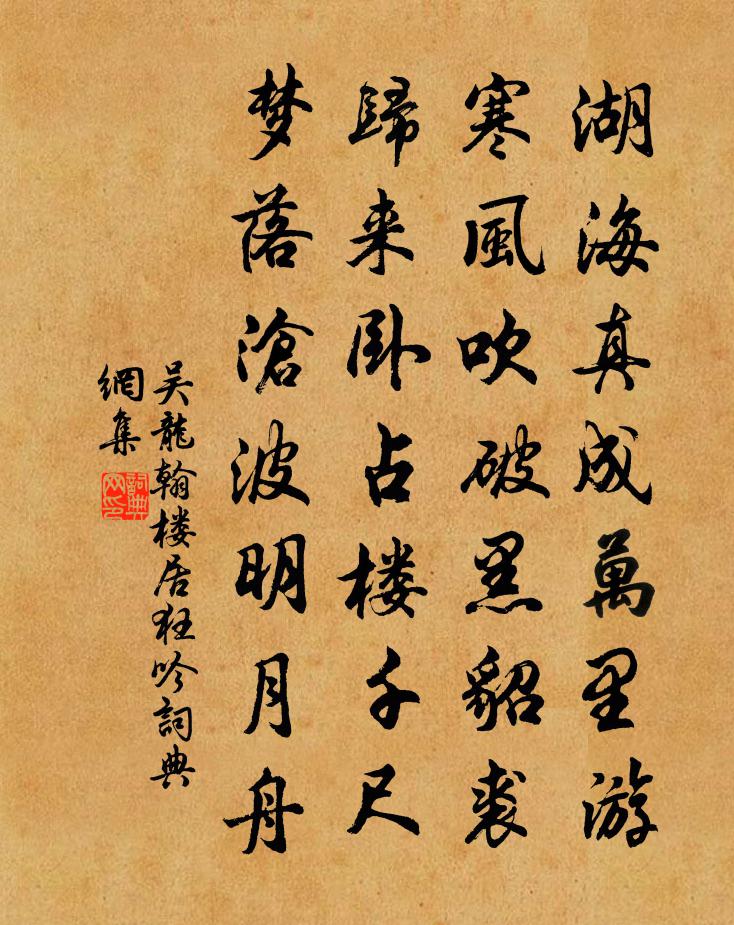 湖海真成萬里游
寒風吹破黑貂裘
歸来卧占楼千尺
梦落滄波明月舟
吴龍翰楼居狂吟詞典
網集
詞典
网印